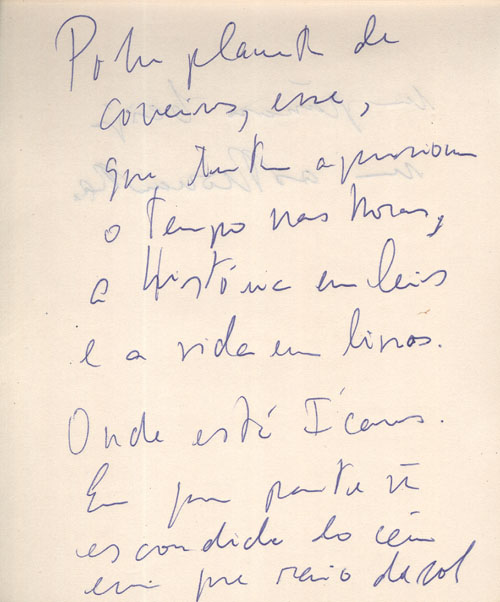 Pobre planeta de
coveiros, esse,
que tenta aprisionar
o tempo nas horas,
a História em leis
e a vida em livros.
Onde está Ícaros.
Em que parte
escondida do céu
em que raio de sol